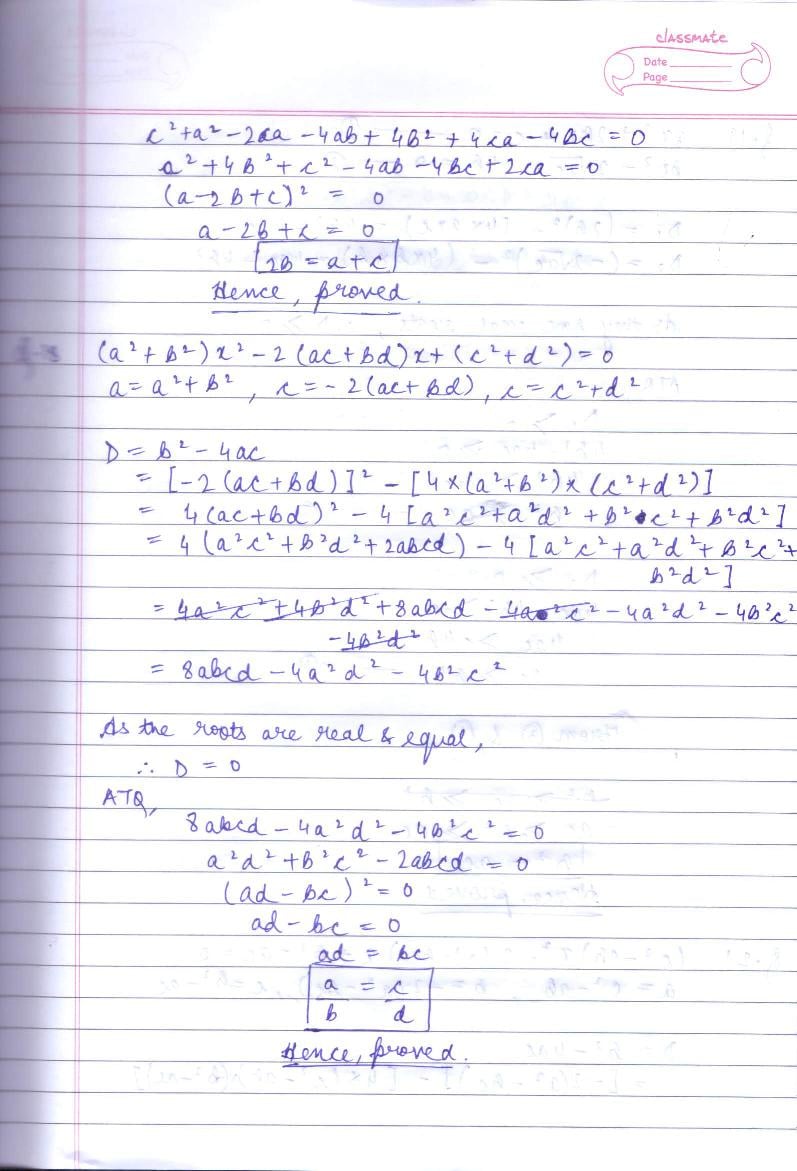 classmate
Date
Page
c²+a²-2ca-4ab+4b²+4ca-4bc=0
a²+4b²+c²-4ab-4bc+2ca=0
(a-2b+c)² = 0
a-2b+c = 0
2b = a+c
Hence, proved.
(a²+b²)x²-2(ac+bd)x+(c²+d²)=0
a=a²+b², c=-2(ac+bd), c=c²+d²
D = b²-4ac
= [-2(ac+bd)]² - [4×(a²+b²)×(c²+d²)]
= 4(ac+bd)² - 4[a²c²+a²d²+b²c²+b²d²]
= 4(a²c²+b²d²+2abcd)-4[a²c²+a²d²+b²c²+
b²d²]
= 4a²c²+4b²d²+8abcd-4a²c²-4a²d²-4b²c²
-4b²d²
= 8abcd-4a²d²-4b²c²
As the roots are real & equal,
∴ D = 0
ATQ,
8abcd-4a²d²-4b²c²=0
a²d²+b²c²-2abcd=0
(ad-bc)²=0
ad-bc=0
ad = bc
a = c
b d
Hence, proved.